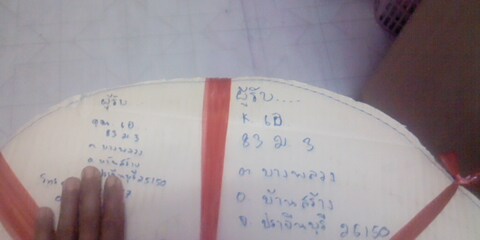 ผู้รับ
คุณ เอ
83 ม. 3
ต. บางพลวง
อ. บ้านสร้าง
ปราจีนบุรี 25150
โทร
ผู้รับ.....
K. เอ
83 ม. 3
ต. บางพลวง
อ. บ้านสร้าง
จ. ปราจีนบุรี 25150